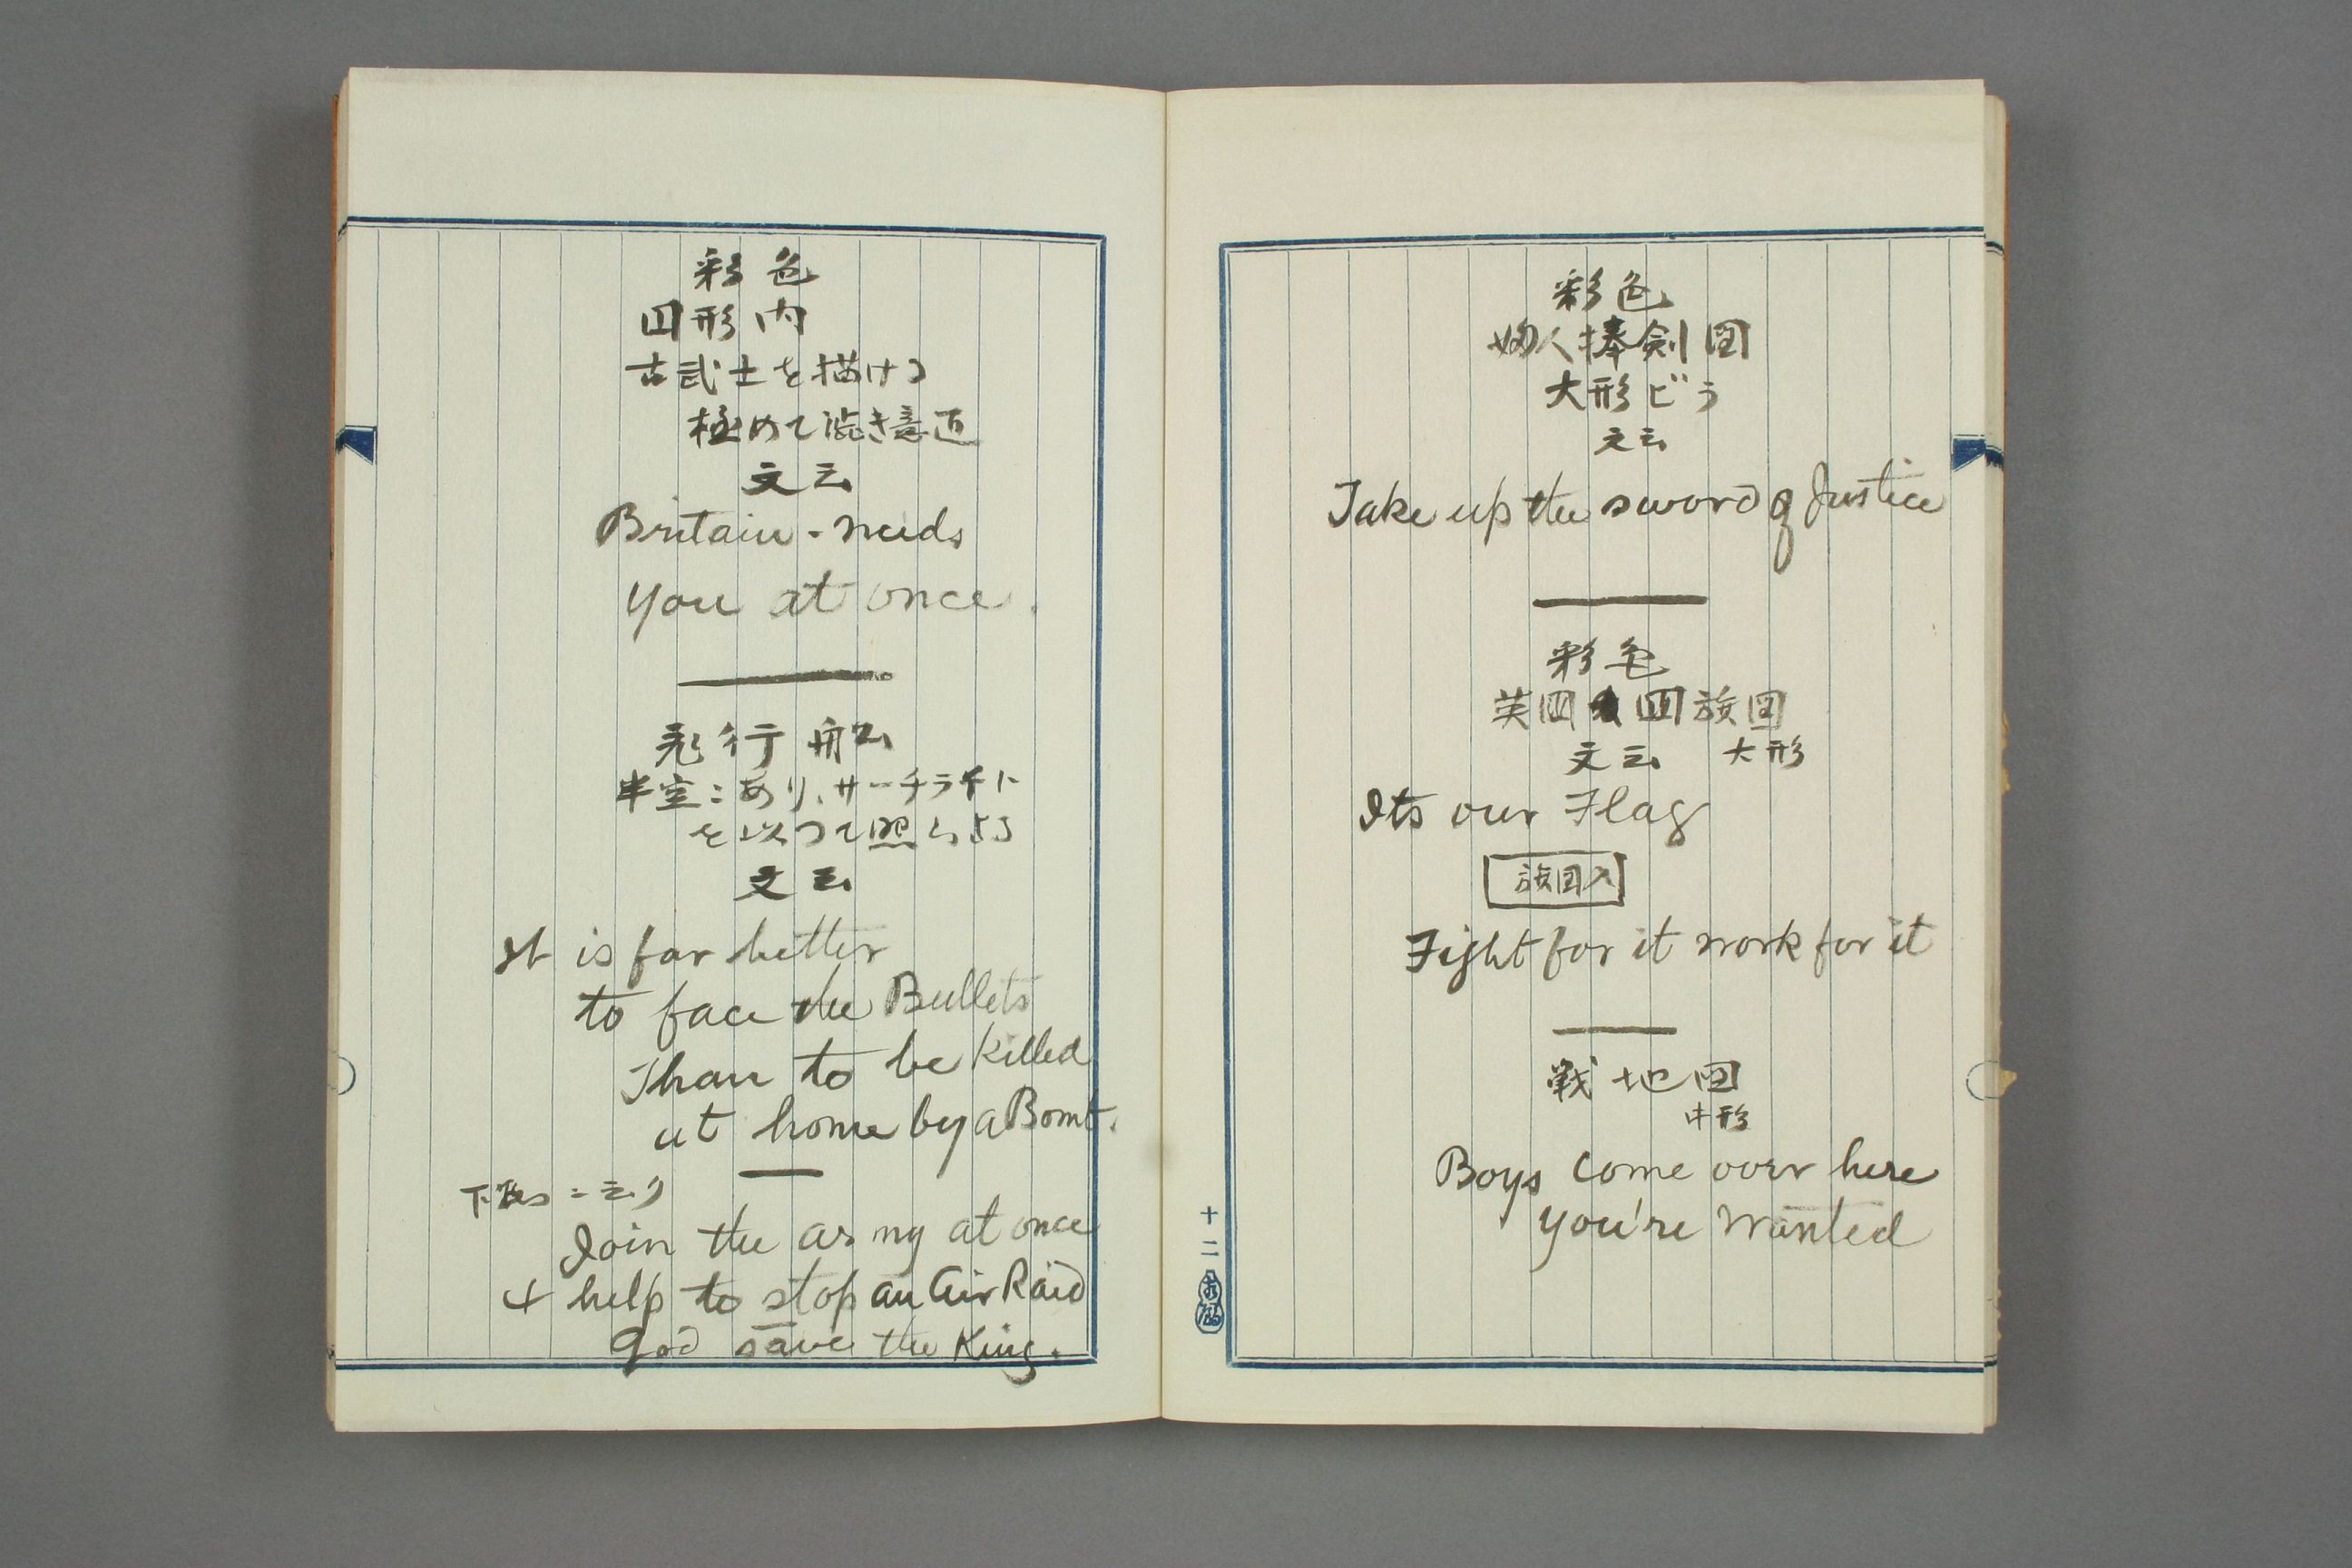 彩色
婦人捧剣図
大形ビラ
文云
Take up the sword of Justice
彩色
英国国旗図
文云 大形
Its our Flag
旗図入
Fight for it work for it
戦地図
中形
Boys come over here
you're wanted
十二
彩色
円形内
古武士を描ける
極めて渋き意匠
文云
Britain - needs
you at once.
飛行船
半空ニあり、サーチライト
を以つて照らさる
文云
It is far better
to face the Bullets
Than to be killed
at home by a Bomb.
下段ニ云り
Join the army at once
& help to stop an Air Raid
God save the King.